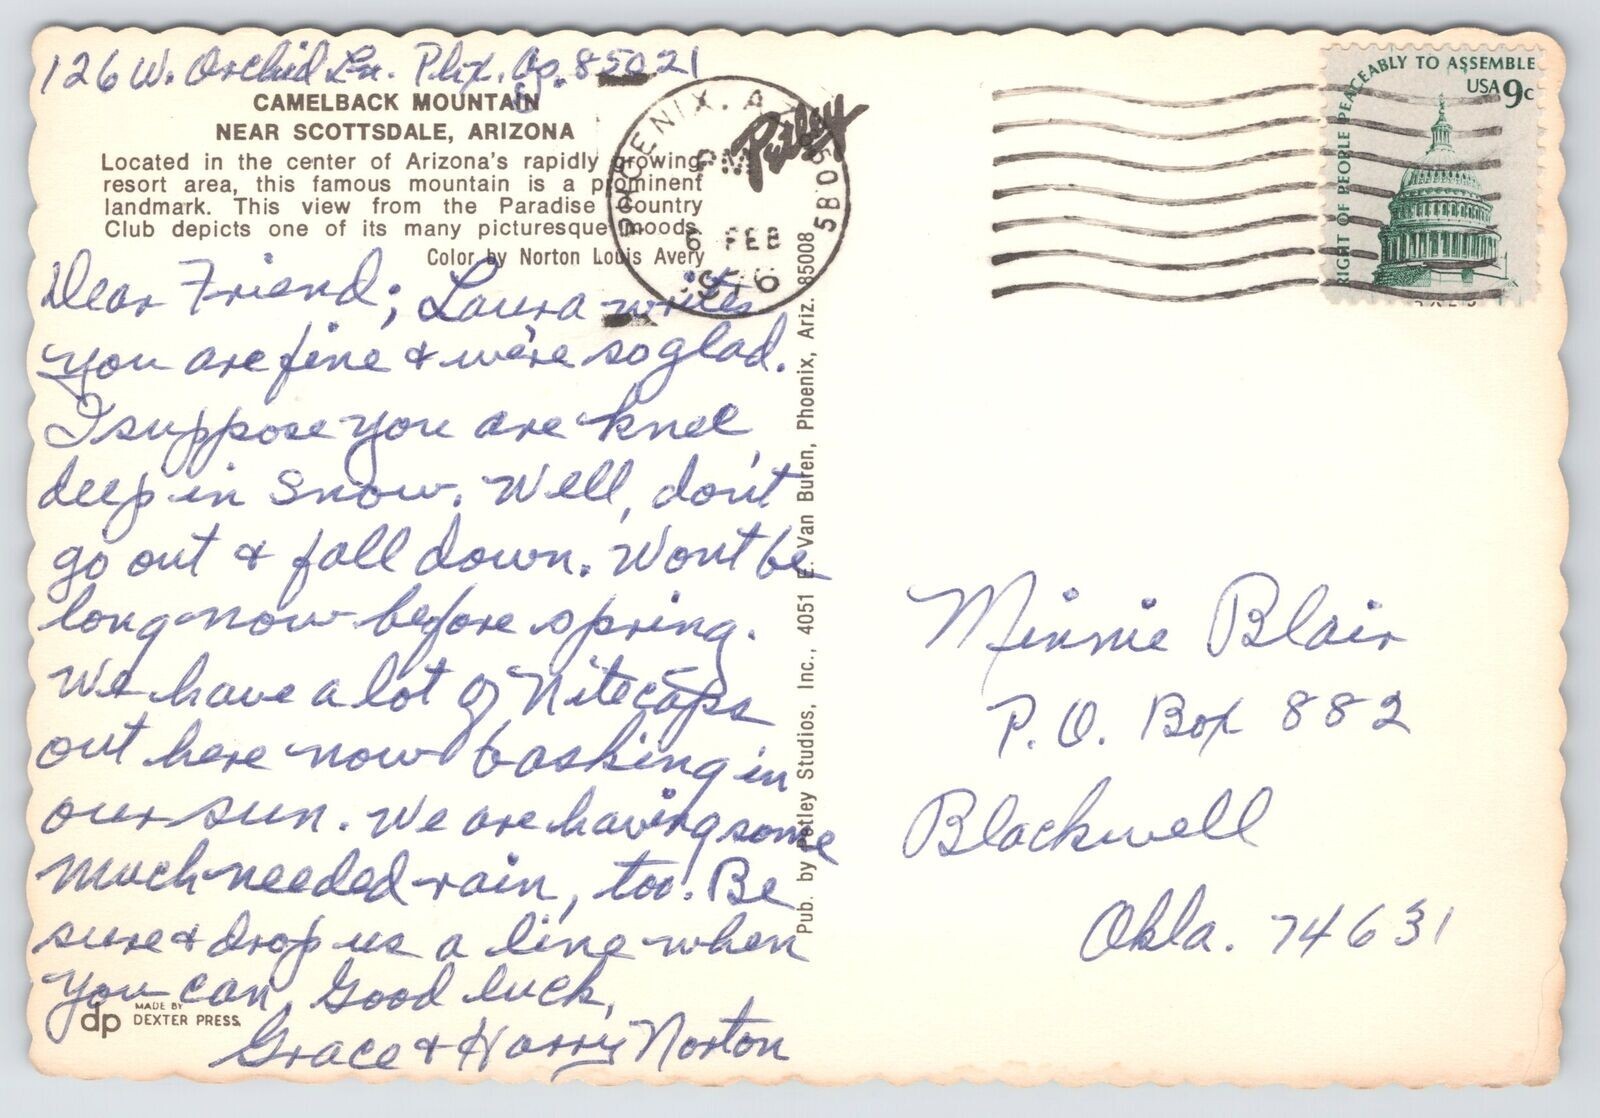 126 W. Orchid Ln. Phx, Az. 85021
CAMELBACK MOUNTAIN
NEAR SCOTTSDALE, ARIZONA
Located in the center of Arizona's rapidly growing
resort area, this famous mountain is a prominent
landmark. This view from the Paradise Country
Club depicts one of its many picturesque moods.
Color by Norton Louis Avery
Dear Friend; Laura writes
you are fine & we're so glad.
I suppose you are knee
deep in snow. Well, don't
go out & fall down. Won't be
long now before spring.
We have a lot of Nitecaps
out here now basking in
our sun. We are having some
much needed rain, too. Be
sure & drop us a line when
you can. Good luck,
Grace & Harry Norton
dp MADE BY
DEXTER PRESS
Pub. by Petley Studios, Inc., 4051 E. Van Buren, Phoenix, Ariz. 85008
Petley
PHOENIX, A
PM
6 FEB
1976
RIGHT OF PEOPLE PEACEABLY TO ASSEMBLE
USA 9c
Minnie Blair
P.O. Box 882
Blackwell
Okla. 74631